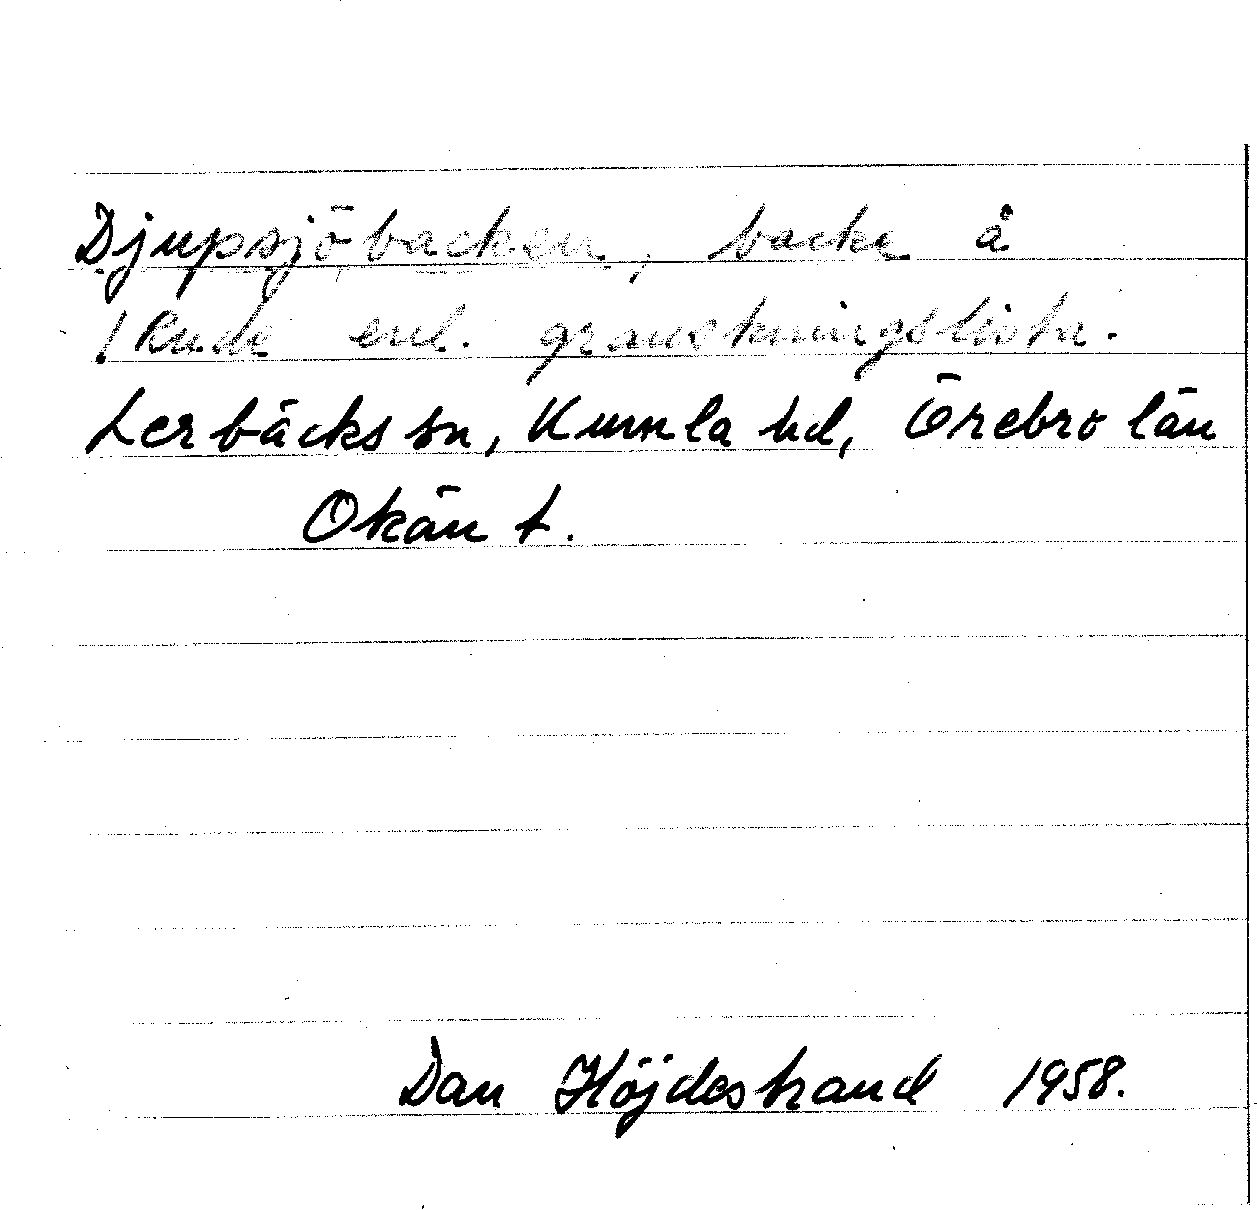 Djupsjöbacken, backe å
1 Rude enl. granskningslista.
Lerbäcks sn, Kumla hd, Örebro län
Okänt.
Dan Höjdestrand 1958.